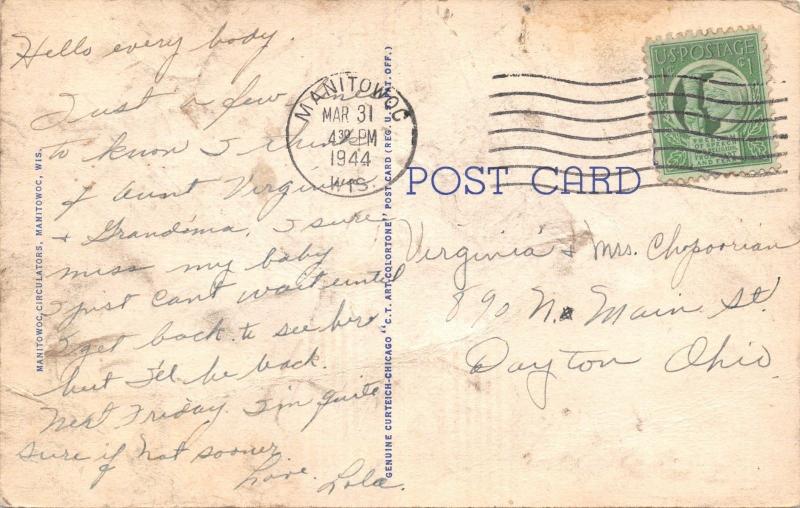 Hello every body.
Just a few lines
to know I think
of Aunt Virginia
+ Grandma. I sure
miss my baby
I just can't wait until
I get back to see her
but I'll be back.
Next Friday I'm quite
sure if not sooner.
Love. Lola.
MANITOWOC CIRCULATORS, MANITOWOC, WIS.
GENUINE CURTEICH-CHICAGO "C.T. ART-COLORTONE" POST CARD (REG. U.S. PAT. OFF.)
MANITOWOC
MAR 31
4 30 PM
1944
WIS.
U.S. POSTAGE
¢1
POST CARD
Virginia + Mrs. Chopoorian
890 N. Main St.
Dayton Ohio